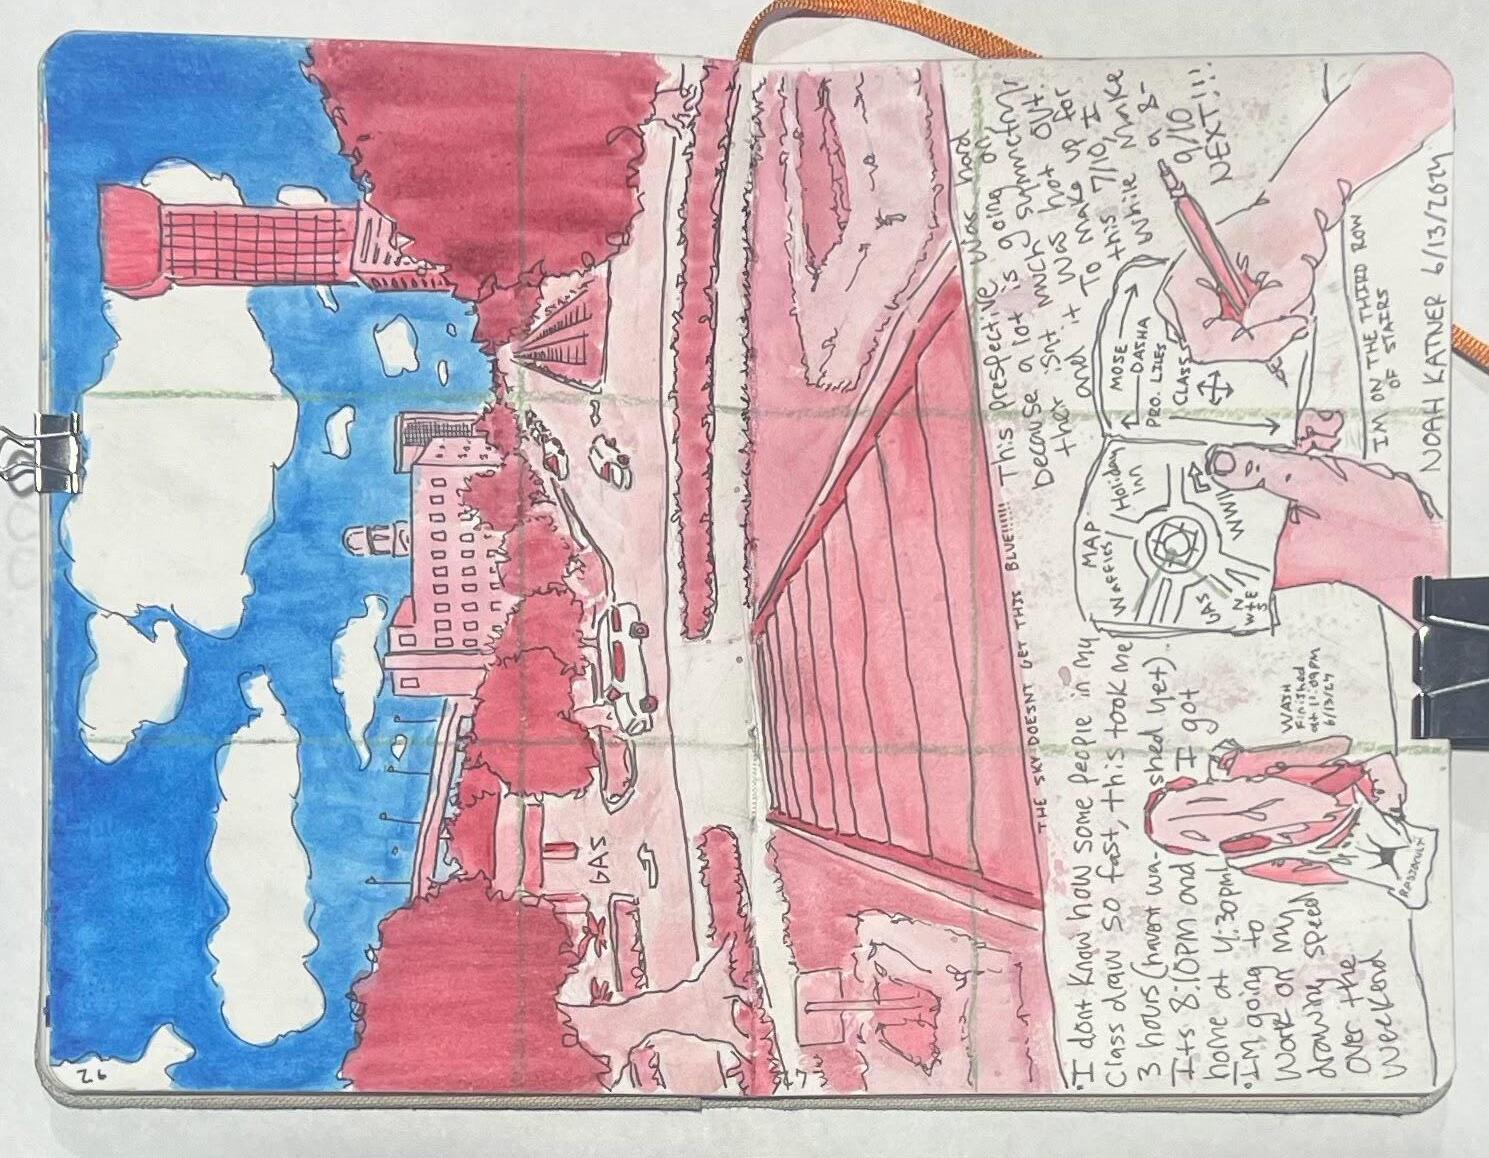 26
GAS
47
THE SKY DOESNT GET THIS BLUE!!!!!!
This prespective was hard
because a lot is going on,
ther isnt much symmetry
and it was hot out.
To make up for
this 7/10, I
While make
a 8-
9/10
NEXT!!!
MOSE
DASHA
PRO. LIES
CLASS
MAP
Waffles
Holiday
Inn
WWII
GAS
N
W E
S
I dont know how some people in my
Class draw so fast, this took me
3 hours (havent wa-
shed yet).
Its 8:10PM and I got
home at 4:30pm
I'm going to
work on my
drawing speed
over the
weekend
WASH
Finished
at 11:09pm
6/13/24
IM ON THE THIRD ROW
OF STAIRS
NOAH KATNER 6/13/2024